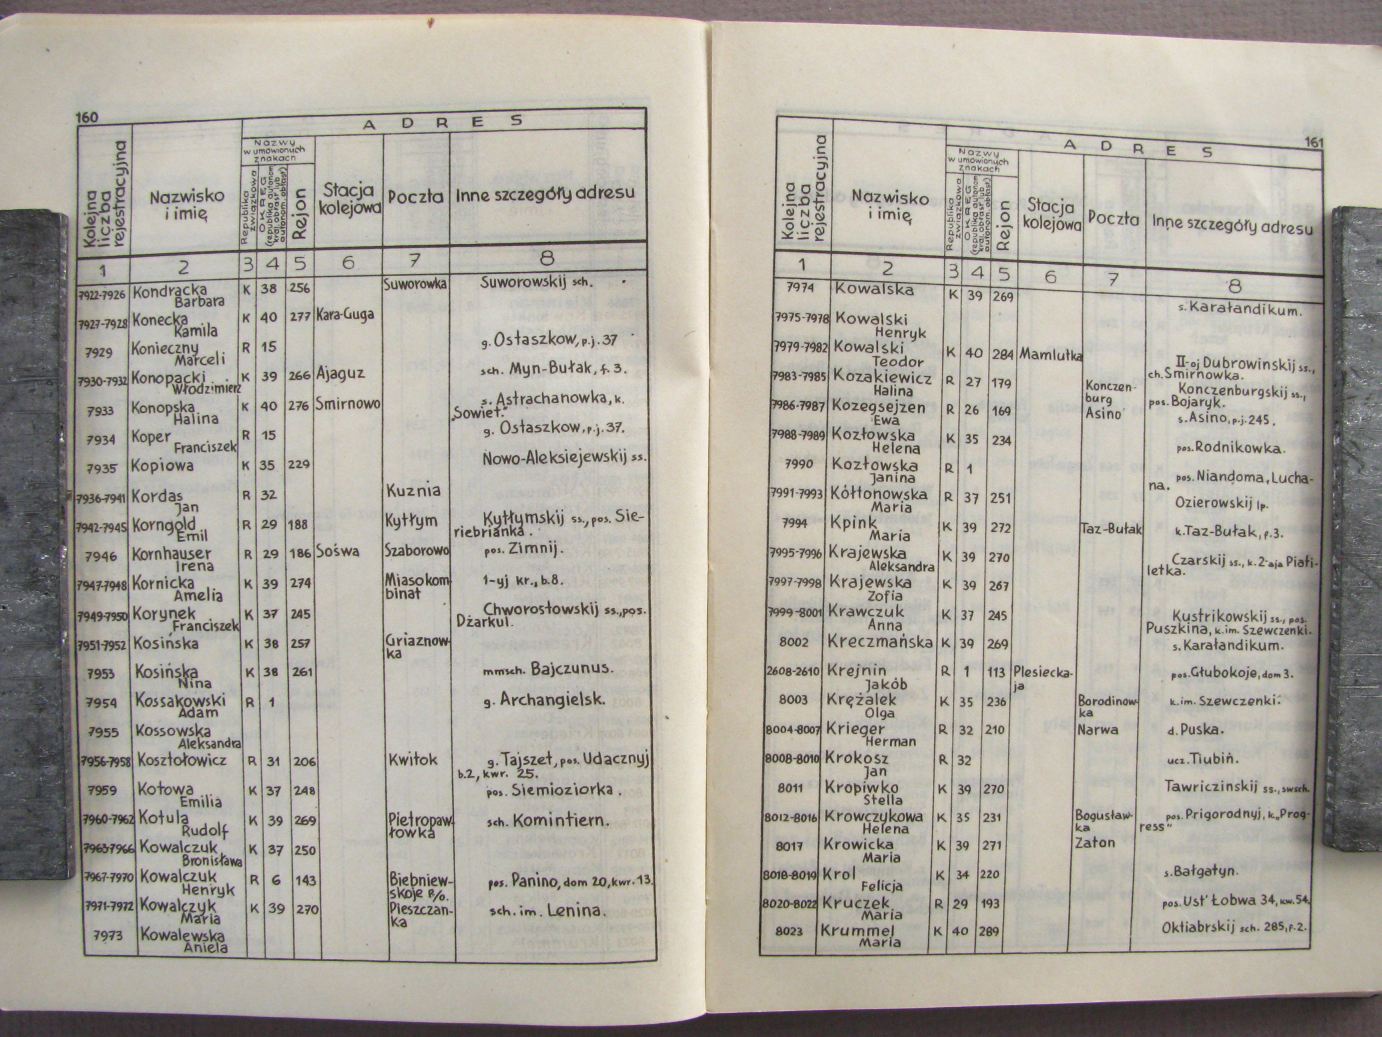 160
A D R E S
Kolejna liczba rejestracyjna
Nazwisko i imię
Nazwy w umówionych znakach
Republika związkowa
OKRĘG
Rejon
Stacja kolejowa
Poczta
Inne szczegóły adresu
1 2 3 4 5 6 7 8
7922-7926 Kondracka Barbara K 38 256 Suworowka Suworowskij sch.
7927-7928 Konecka Kamila K 40 277 Kara-Guga
7929 Konieczny Marceli R 15 g. Ostaszkow, p.j. 37
7930-7932 Konopacki Włodzimierz K 39 266 Ajaguz sch. Myn-Bułak, f. 3.
7933 Konopska Halina K 40 276 Smirnowo s. Astrachanowka, k. „Sowiet"
7934 Koper Franciszek R 15 g. Ostaszkow, p.j. 37.
7935 Kopiowa K 35 229 Nowo-Aleksiejewskij ss.
7936-7941 Kordas Jan R 32 Kuznia
7942-7945 Korngold Emil R 29 188 Kytłym Kytłymskij ss., pos. Sieriebrianka.
7946 Kornhauser Irena R 29 186 Sośwa Szaborowo pos. Zimnij.
7947-7948 Kornicka Amelia K 39 274 Miasokombinat 1-yj kr., b.8.
7949-7950 Korynek Franciszek K 37 245 Chworostowskij ss., pos. Dżarkul.
7951-7952 Kosińska K 38 257 Griaznowka
7953 Kosińska Nina K 38 261 mmsch. Bajczunus.
7954 Kossakowski Adam R 1 g. Archangielsk.
7955 Kossowska Aleksandra
7956-7958 Kosztołowicz R 31 206 Kwitok g. Tajszet, pos. Udacznyj b.2, kwr. 25.
7959 Kotowa Emilia K 37 248 pos. Siemioziorka.
7960-7962 Kotula Rudolf K 39 269 Pietropawłowka sch. Komintiern.
7963-7966 Kowalczuk Bronisława K 37 250
7967-7970 Kowalczuk Henryk R 6 143 Biebniewskoje p/o. pos. Panino, dom 20, kwr. 13.
7971-7972 Kowalczyk Maria K 39 270 Pieszczanka sch. im. Lenina.
7973 Kowalewska Aniela
161
A D R E S
Kolejna liczba rejestracyjna
Nazwisko i imię
Nazwy w umówionych znakach
Republika związkowa
OKRĘG
Rejon
Stacja kolejowa
Poczta
Inne szczegóły adresu
1 2 3 4 5 6 7 8
7974 Kowalska K 39 269 s. Karałandikum.
7975-7978 Kowalski Henryk
7979-7982 Kowalski Teodor K 40 284 Mamlutka II-oj Dubrowinskij ss., ch. Smirnowka.
7983-7985 Kozakiewicz Halina R 27 179 Konczenburg Konczenburgskij ss., pos. Bojaryk.
7986-7987 Kozegsejzen Ewa R 26 169 Asino s. Asino, p.j. 245.
7988-7989 Kozłowska Helena K 35 234 pos. Rodnikowka.
7990 Kozłowska Janina R 1 pos. Niandoma, Luchana.
7991-7993 Kółtonowska Maria R 37 251 Ozierowskij lp.
7994 Kpink Maria K 39 272 Taz-Bułak k. Taz-Bułak, f. 3.
7995-7996 Krajewska Aleksandra K 39 270 Czarskij ss., k. 2-aja Piatiletka.
7997-7998 Krajewska Zofia K 39 267
7999-8001 Krawczuk Anna K 37 245 Kustrikowskij ss., pos. Puszkina, k. im. Szewczenki.
8002 Kreczmańska K 39 269 s. Karałandikum.
2608-2610 Krejnin Jakób R 1 113 Plesieckaja pos. Głubokoje, dom 3.
8003 Krężałek Olga K 35 236 Borodinowka k. im. Szewczenki.
8004-8007 Krieger Herman R 32 210 Narwa d. Puska.
8008-8010 Krokosz Jan R 32 ucz. Tiubiń.
8011 Kropiwko Stella K 39 270 Tawriczinskij ss., swsch.
8012-8016 Krowczykowa Helena K 35 231 Bogusławka pos. Prigorodnyj, k. „Progress"
8017 Krowicka Maria K 39 271 Zaton
8018-8019 Krol Felicja K 34 220 s. Bałgatyn.
8020-8022 Kruczek Maria R 29 193 pos. Ust' Łobwa 34, kw. 54.
8023 Krummel Maria K 40 289 Oktiabrskij sch. 285, f. 2.